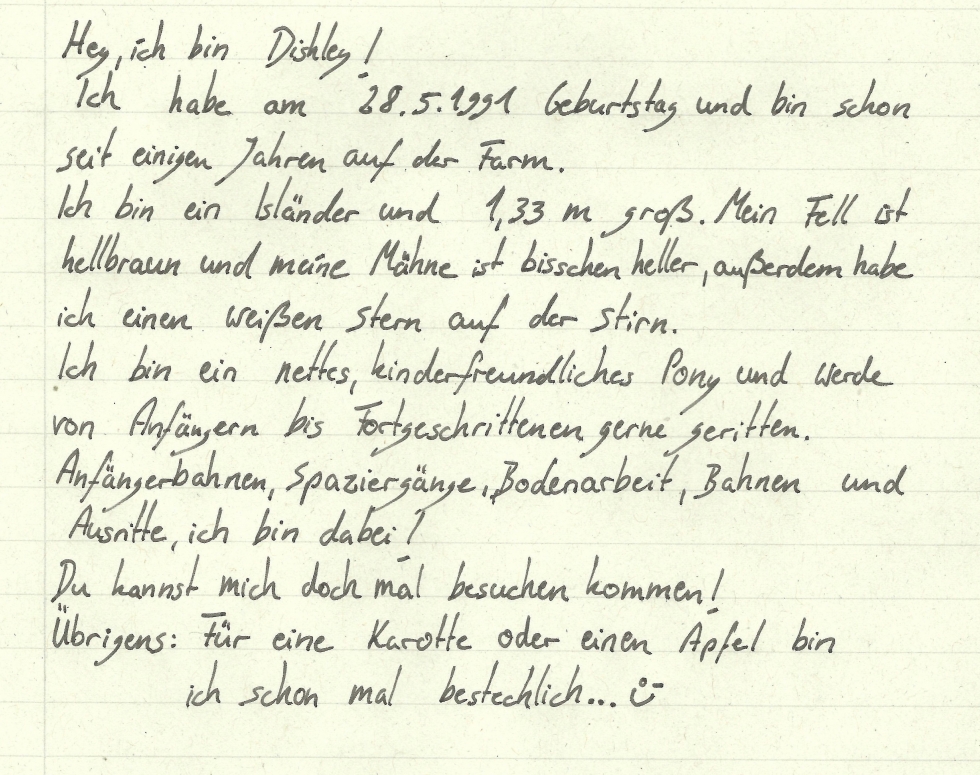 Hey, ich bin Dishley!
Ich habe am 28.5.1991 Geburtstag und bin schon
seit einigen Jahren auf der Farm.
Ich bin ein Isländer und 1,33 m groß. Mein Fell ist
hellbraun und meine Mähne ist bisschen heller, außerdem habe
ich einen weißen Stern auf der Stirn.
Ich bin ein nettes, kinderfreundliches Pony und werde
von Anfängern bis Fortgeschrittenen gerne geritten.
Anfängerbahnen, Spaziergänge, Bodenarbeit, Bahnen und
Ausritte, ich bin dabei!
Du kannst mich doch mal besuchen kommen!
Übrigens: Für eine Karotte oder einen Apfel bin
ich schon mal bestechlich... ☺